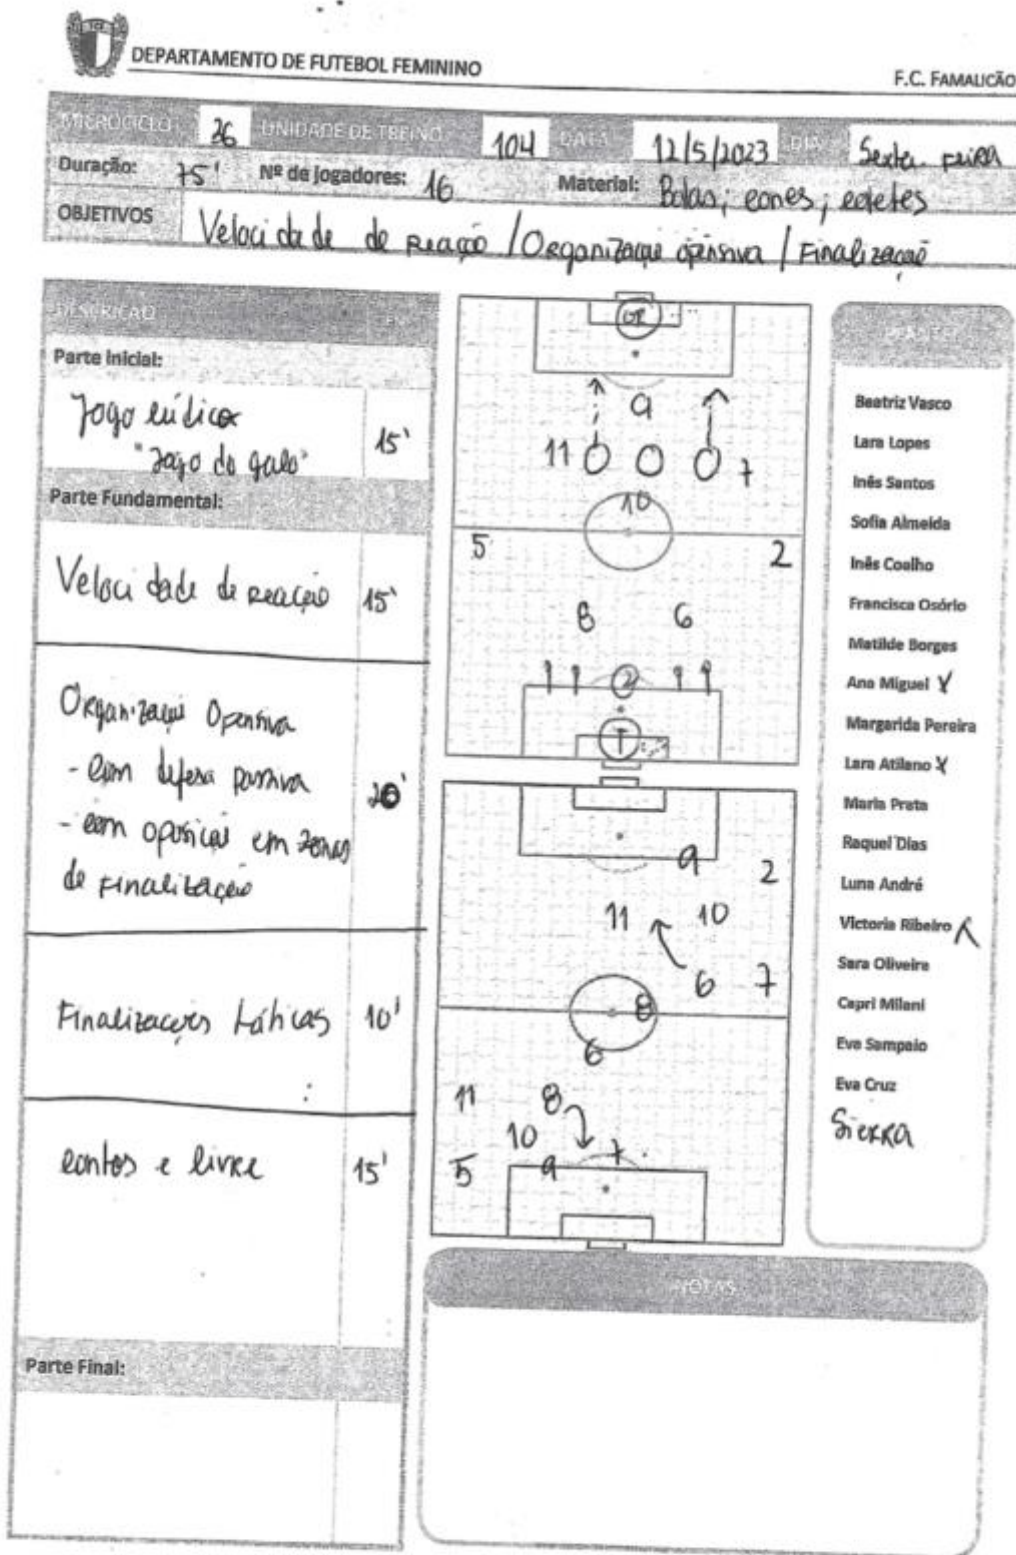 DEPARTAMENTO DE FUTEBOL FEMININO
F.C. FAMALICÃO
MICROCICLO 36 UNIDADE DE TREINO 104 DATA 12/5/2023 DIA Sexta-feira
Duração: 75' Nº de jogadores: 16 Material: Bolas; cones; coletes
OBJETIVOS Velocidade de reação / Organização ofensiva / Finalização
DESCRIÇÃO
Parte Inicial:
Jogo lúdico
"Jogo do galo" 15'
Parte Fundamental:
Velocidade de reação 15'
Organização Ofensiva
- com defesa passiva
20'
- com oposição em zonas
de finalização
Finalizações táticas 10'
cantos e livre 15'
Parte Final:
GR
9
11 7
10
5 2
8 6
2
T
9 2
11 10
6 7
8
6
11 8
10 7
5 9
Beatriz Vasco
Lara Lopes
Inês Santos
Sofia Almeida
Inês Coelho
Francisca Osório
Matilde Borges
Ana Miguel
Margarida Pereira
Lara Atilano
Maria Prata
Raquel Dias
Luna André
Victoria Ribeiro
Sara Oliveira
Capri Milani
Eva Sampaio
Eva Cruz
Sierra
NOTAS